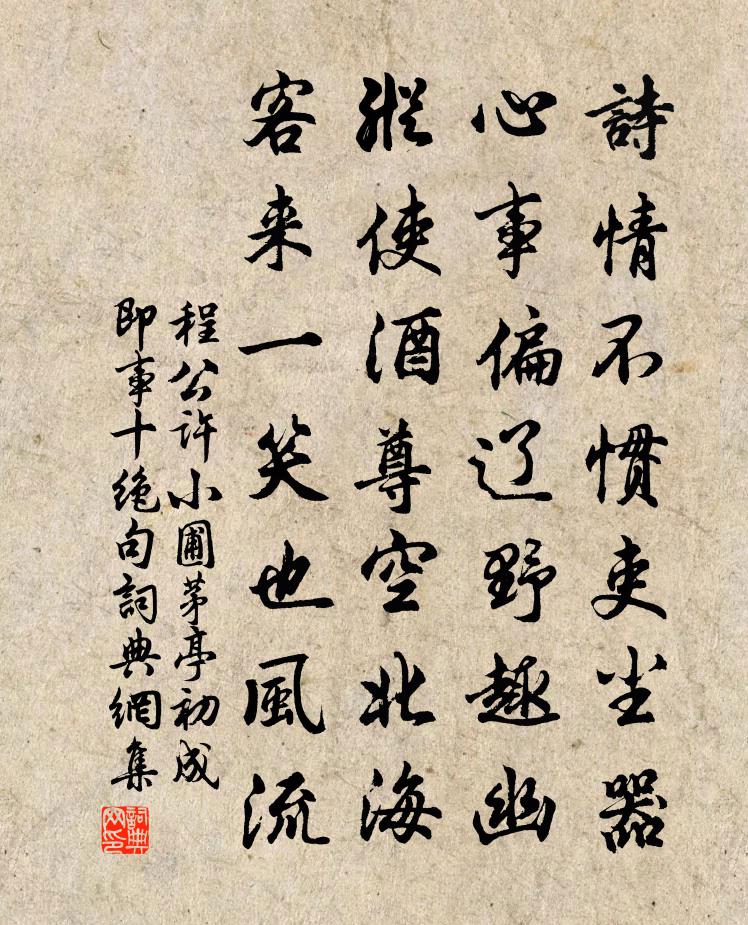 詩情不惯吏尘嚣
心事偏辽野趣幽
縱使酒尊空北海
客来一笑也風流
程公許小圃茅亭初成
即事十絶句詞典網集
詞典网印